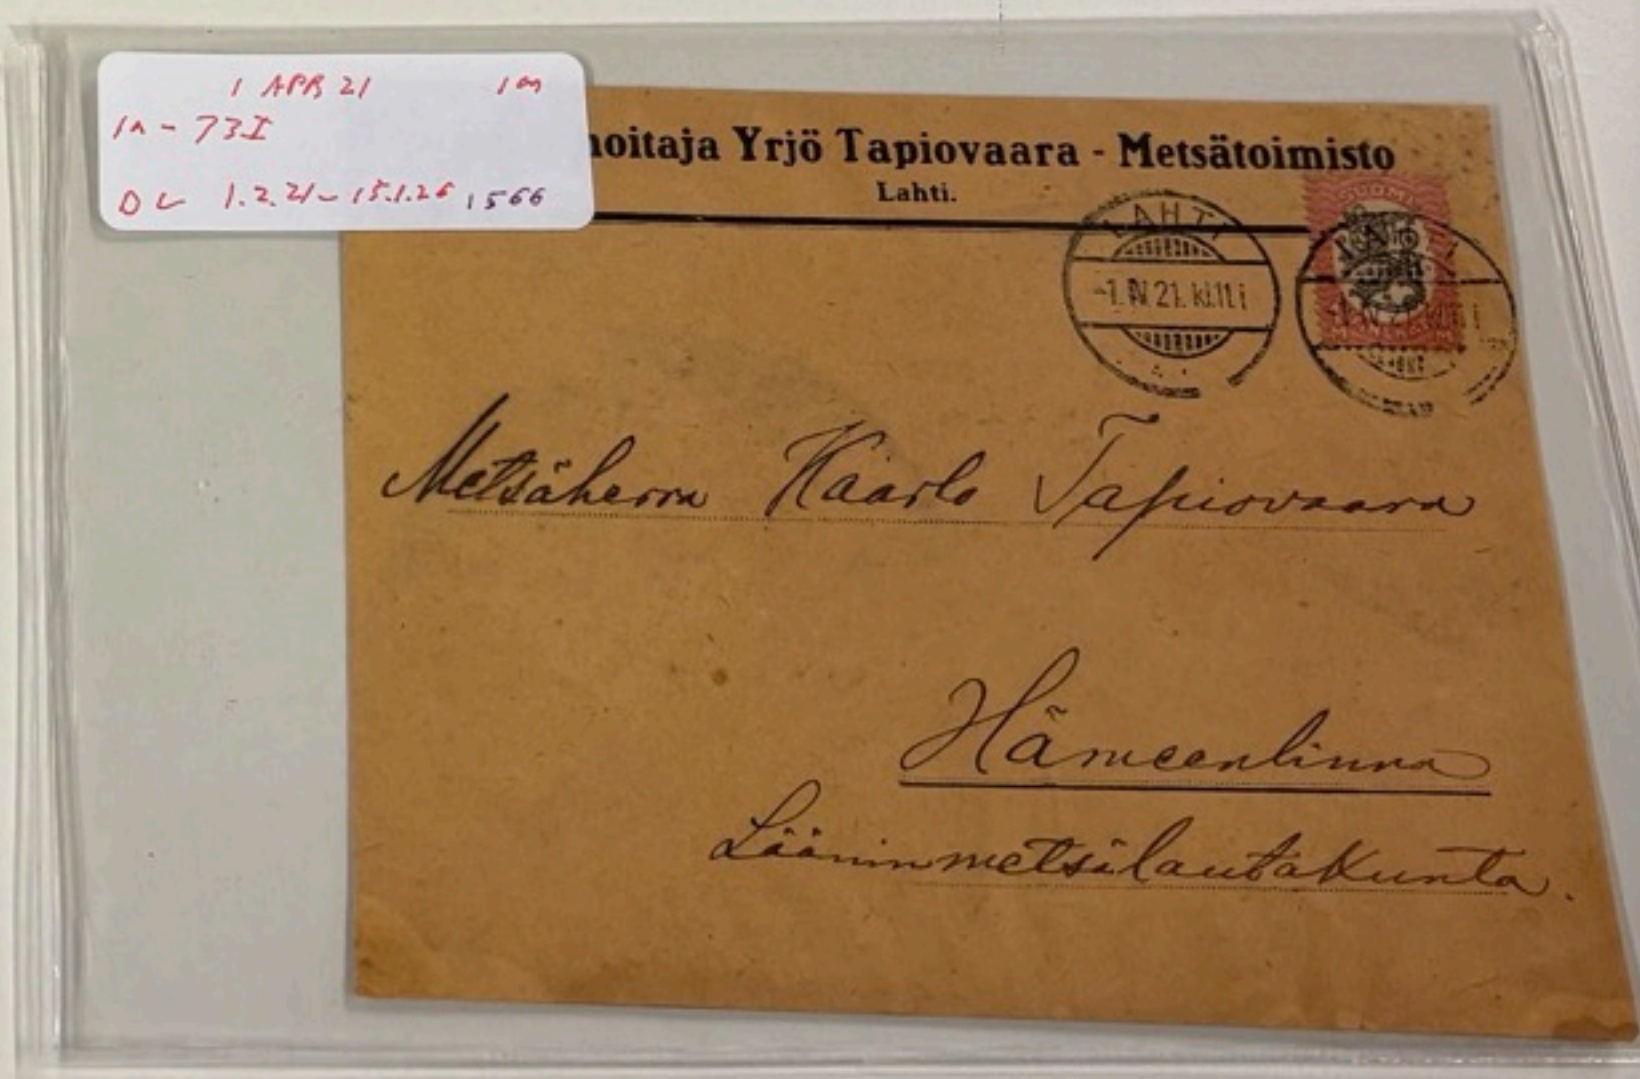 1 APR 21 1m
1A - 73I
DL 1.2.21 - 15.1.26 1566
hoitaja Yrjö Tapiovaara - Metsätoimisto
Lahti.
SUOMI
LAHTI
-1.IV.21. kl.11 i
Metsäherra Kaarlo Tapiovaara
Hämeenlinna
Lääninmetsälautakunta.